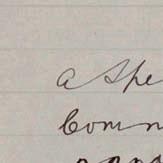 a spe
com